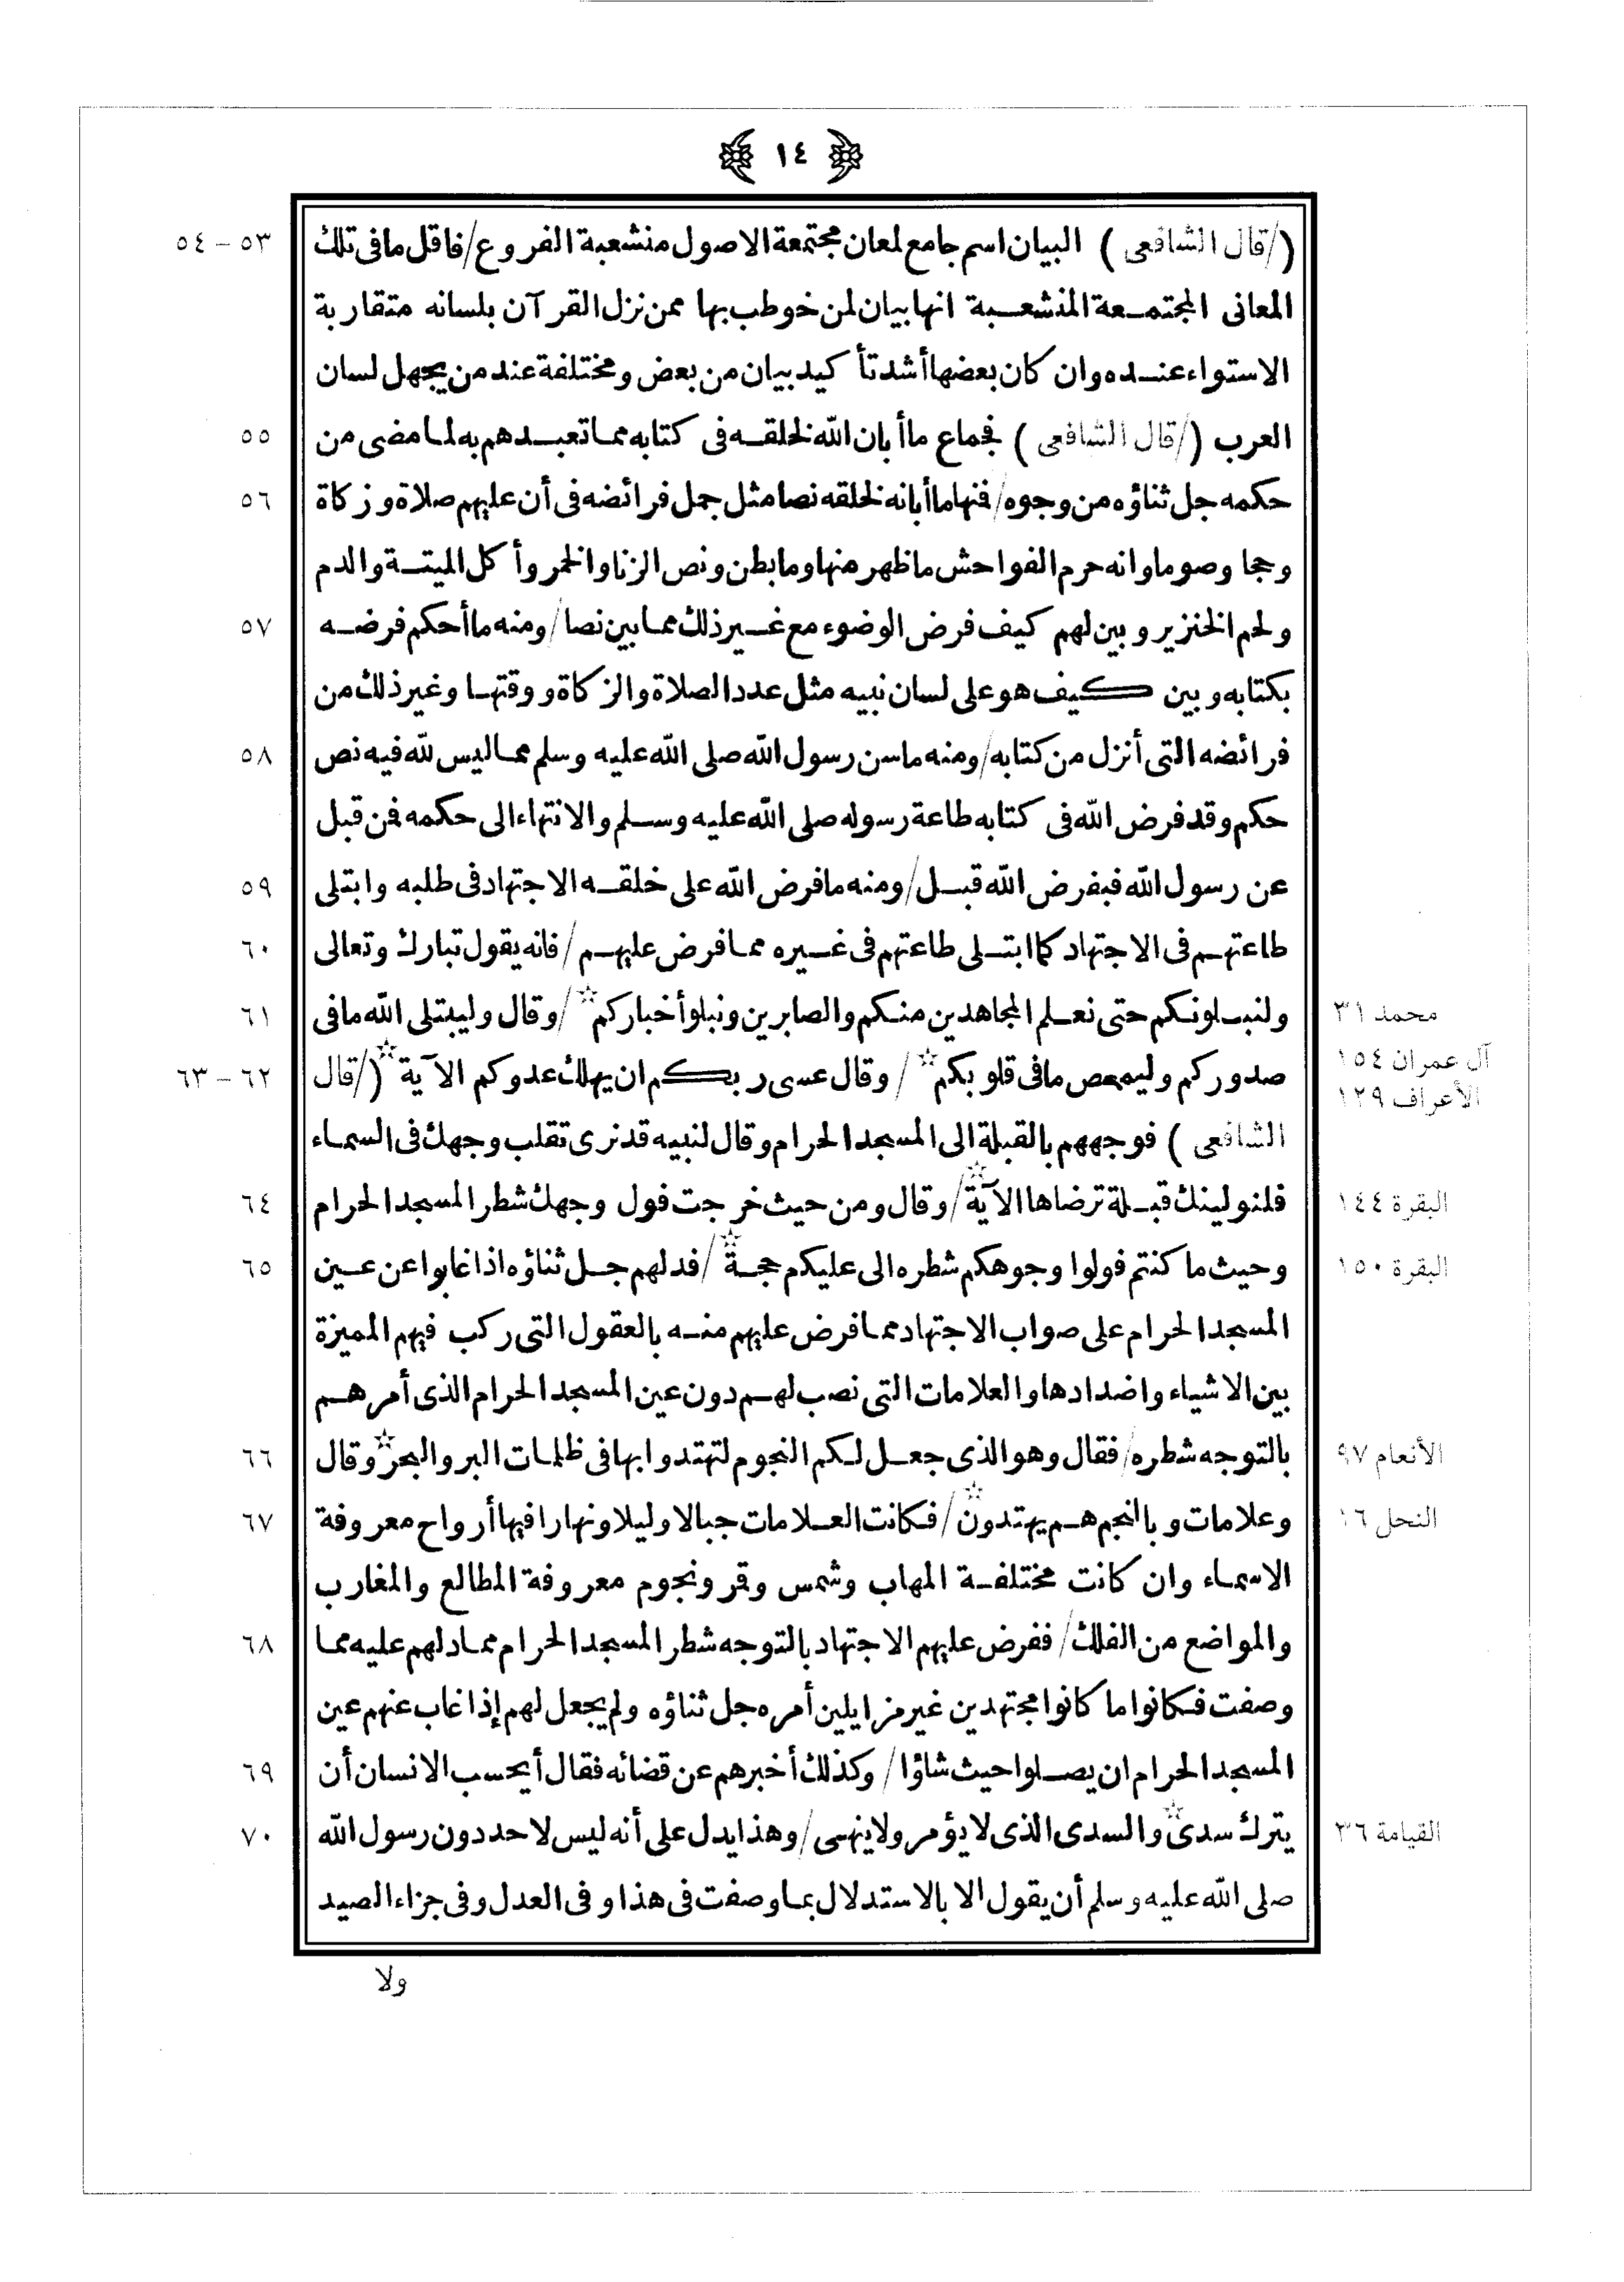 ١٤
(/قال الشافعى) البيان اسم جامع لمعان مجتمعة الاصول منشعبة الفروع/فاقل مافى تلك ٥٣ – ٥٤
المعانى المجتمعة المنشعبة انها بيان لمن خوطب بها ممن نزل القرآن بلسانه متقاربة
الاستواء عنده وان كان بعضها أشد تأكيد بيان من بعض ومختلفة عند من يجهل لسان
العرب (/قال الشافعى) فجماع ما أبان الله لخلقه فى كتابه مما تعبدهم به لما مضى من ٥٥
حكمه جل ثناؤه من وجوه/فمنها ما أبانه لخلقه نصا مثل جمل فرائضه فى أن عليهم صلاة وزكاة ٥٦
وحجا وصوما وانه حرم الفواحش ما ظهر منها وما بطن ونص الزنا والخمر وأكل الميتة والدم
ولحم الخنزير وبين لهم كيف فرض الوضوء مع غير ذلك مما بين نصا/ومنه ما أحكم فرضه ٥٧
بكتابه وبين كيف هو على لسان نبيه مثل عدد الصلاة والزكاة ووقتها وغير ذلك من
فرائضه التى أنزل من كتابه/ومنه ما سن رسول الله صلى الله عليه وسلم مما ليس لله فيه نص ٥٨
حكم وقد فرض الله فى كتابه طاعة رسوله صلى الله عليه وسلم والانتهاء الى حكمه فمن قبل
عن رسول الله فبفرض الله قبل/ومنه ما فرض الله على خلقه الاجتهاد فى طلبه وابتلى ٥٩
طاعتهم فى الاجتهاد كما ابتلى طاعتهم فى غيره مما فرض عليهم/فانه يقول تبارك وتعالى ٦٠
محمد ٣١ ولنبلونكم حتى نعلم المجاهدين منكم والصابرين ونبلو أخباركم☆/وقال وليبتلى الله مافى ٦١
آل عمران ١٥٤ صدوركم وليمحص مافى قلوبكم☆/وقال عسى ربكم ان يهلك عدوكم الآية☆(/قال ٦٢ – ٦٣
الأعراف ١٢٩
الشافعى) فوجههم بالقبلة الى المسجد الحرام وقال لنبيه قد نرى تقلب وجهك فى السماء
البقرة ١٤٤ فلنولينك قبلة ترضاها الآية☆/وقال ومن حيث خرجت فول وجهك شطر المسجد الحرام ٦٤
البقرة ١٥٠ وحيث ما كنتم فولوا وجوهكم شطره الى عليكم حجة☆/فدلهم جل ثناؤه اذا غابوا عن عين ٦٥
المسجد الحرام على صواب الاجتهاد مما فرض عليهم منه بالعقول التى ركب فيهم المميزة
بين الاشياء واضدادها والعلامات التى نصب لهم دون عين المسجد الحرام الذى أمرهم
الأنعام ٩٧ بالتوجه شطره/فقال وهو الذى جعل لكم النجوم لتهتدوا بها فى ظلمات البر والبحر☆وقال ٦٦
النحل ١٦ وعلامات وبالنجم هم يهتدون☆/فكانت العلامات جبالا وليلا ونهارا فيها أرواح معروفة ٦٧
الاسماء وان كانت مختلفة المهاب وشمس وقمر ونجوم معروفة المطالع والمغارب
والمواضع من الفلك/ففرض عليهم الاجتهاد بالتوجه شطر المسجد الحرام مما دلهم عليه مما ٦٨
وصفت فكانوا ما كانوا مجتهدين غير مزايلين أمره جل ثناؤه ولم يجعل لهم إذا غاب عنهم عين
المسجد الحرام ان يصلوا حيث شاؤا/وكذلك أخبرهم عن قضائه فقال أيحسب الانسان أن ٦٩
القيامة ٣٦ يترك سدى☆والسدى الذى لا يؤمر ولا ينهى/وهذا يدل على أنه ليس لاحد دون رسول الله ٧٠
صلى الله عليه وسلم أن يقول الا بالاستدلال بما وصفت فى هذا وفى العدل وفى جزاء الصيد
ولا